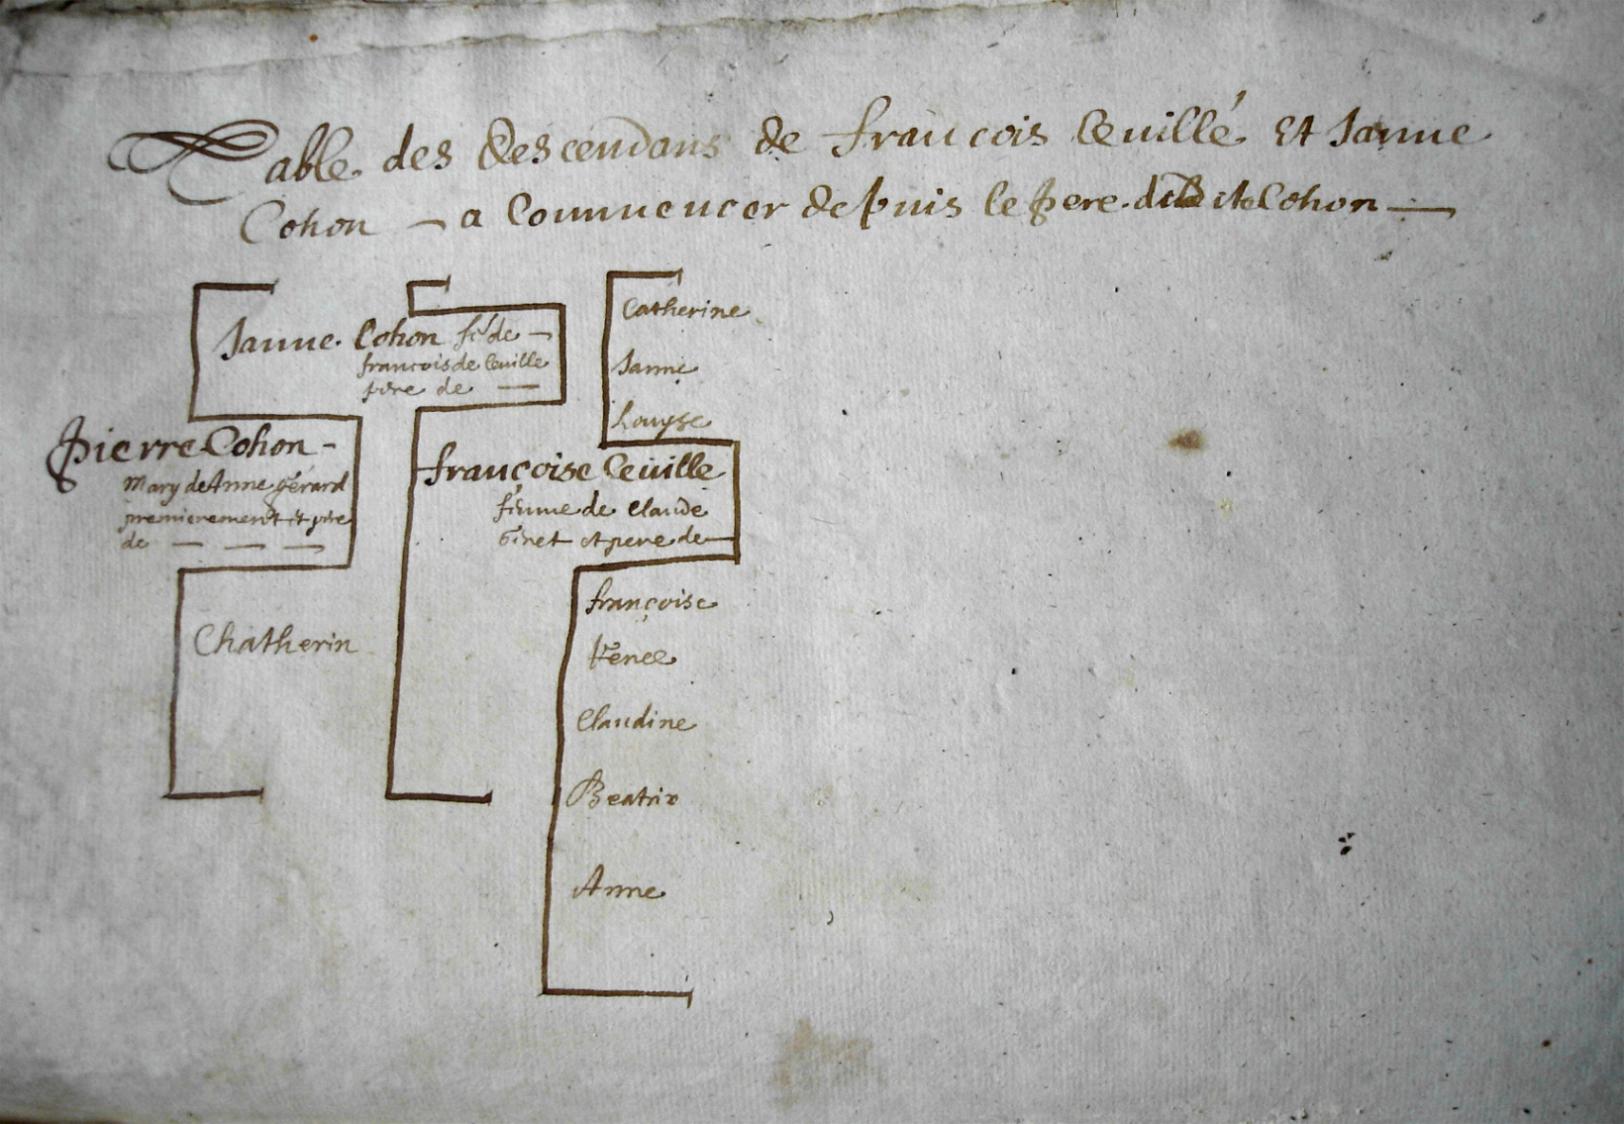 Table des descendans de francois Ceuillé et Janne
Cohon — a Commencer depuis le pere de la dite Cohon —
Janne Cohon fe de —
francois de Ceuille
pere de —
Pierre Cohon -
Mary de Anne gérard
premierement et pere
de — — —
Chatherin
Catherine
Janne
Louyse
françoise Ceuille
femme de Claude
Ginet et pere de —
françoise
Renee
Claudine
Beatrix
Anne